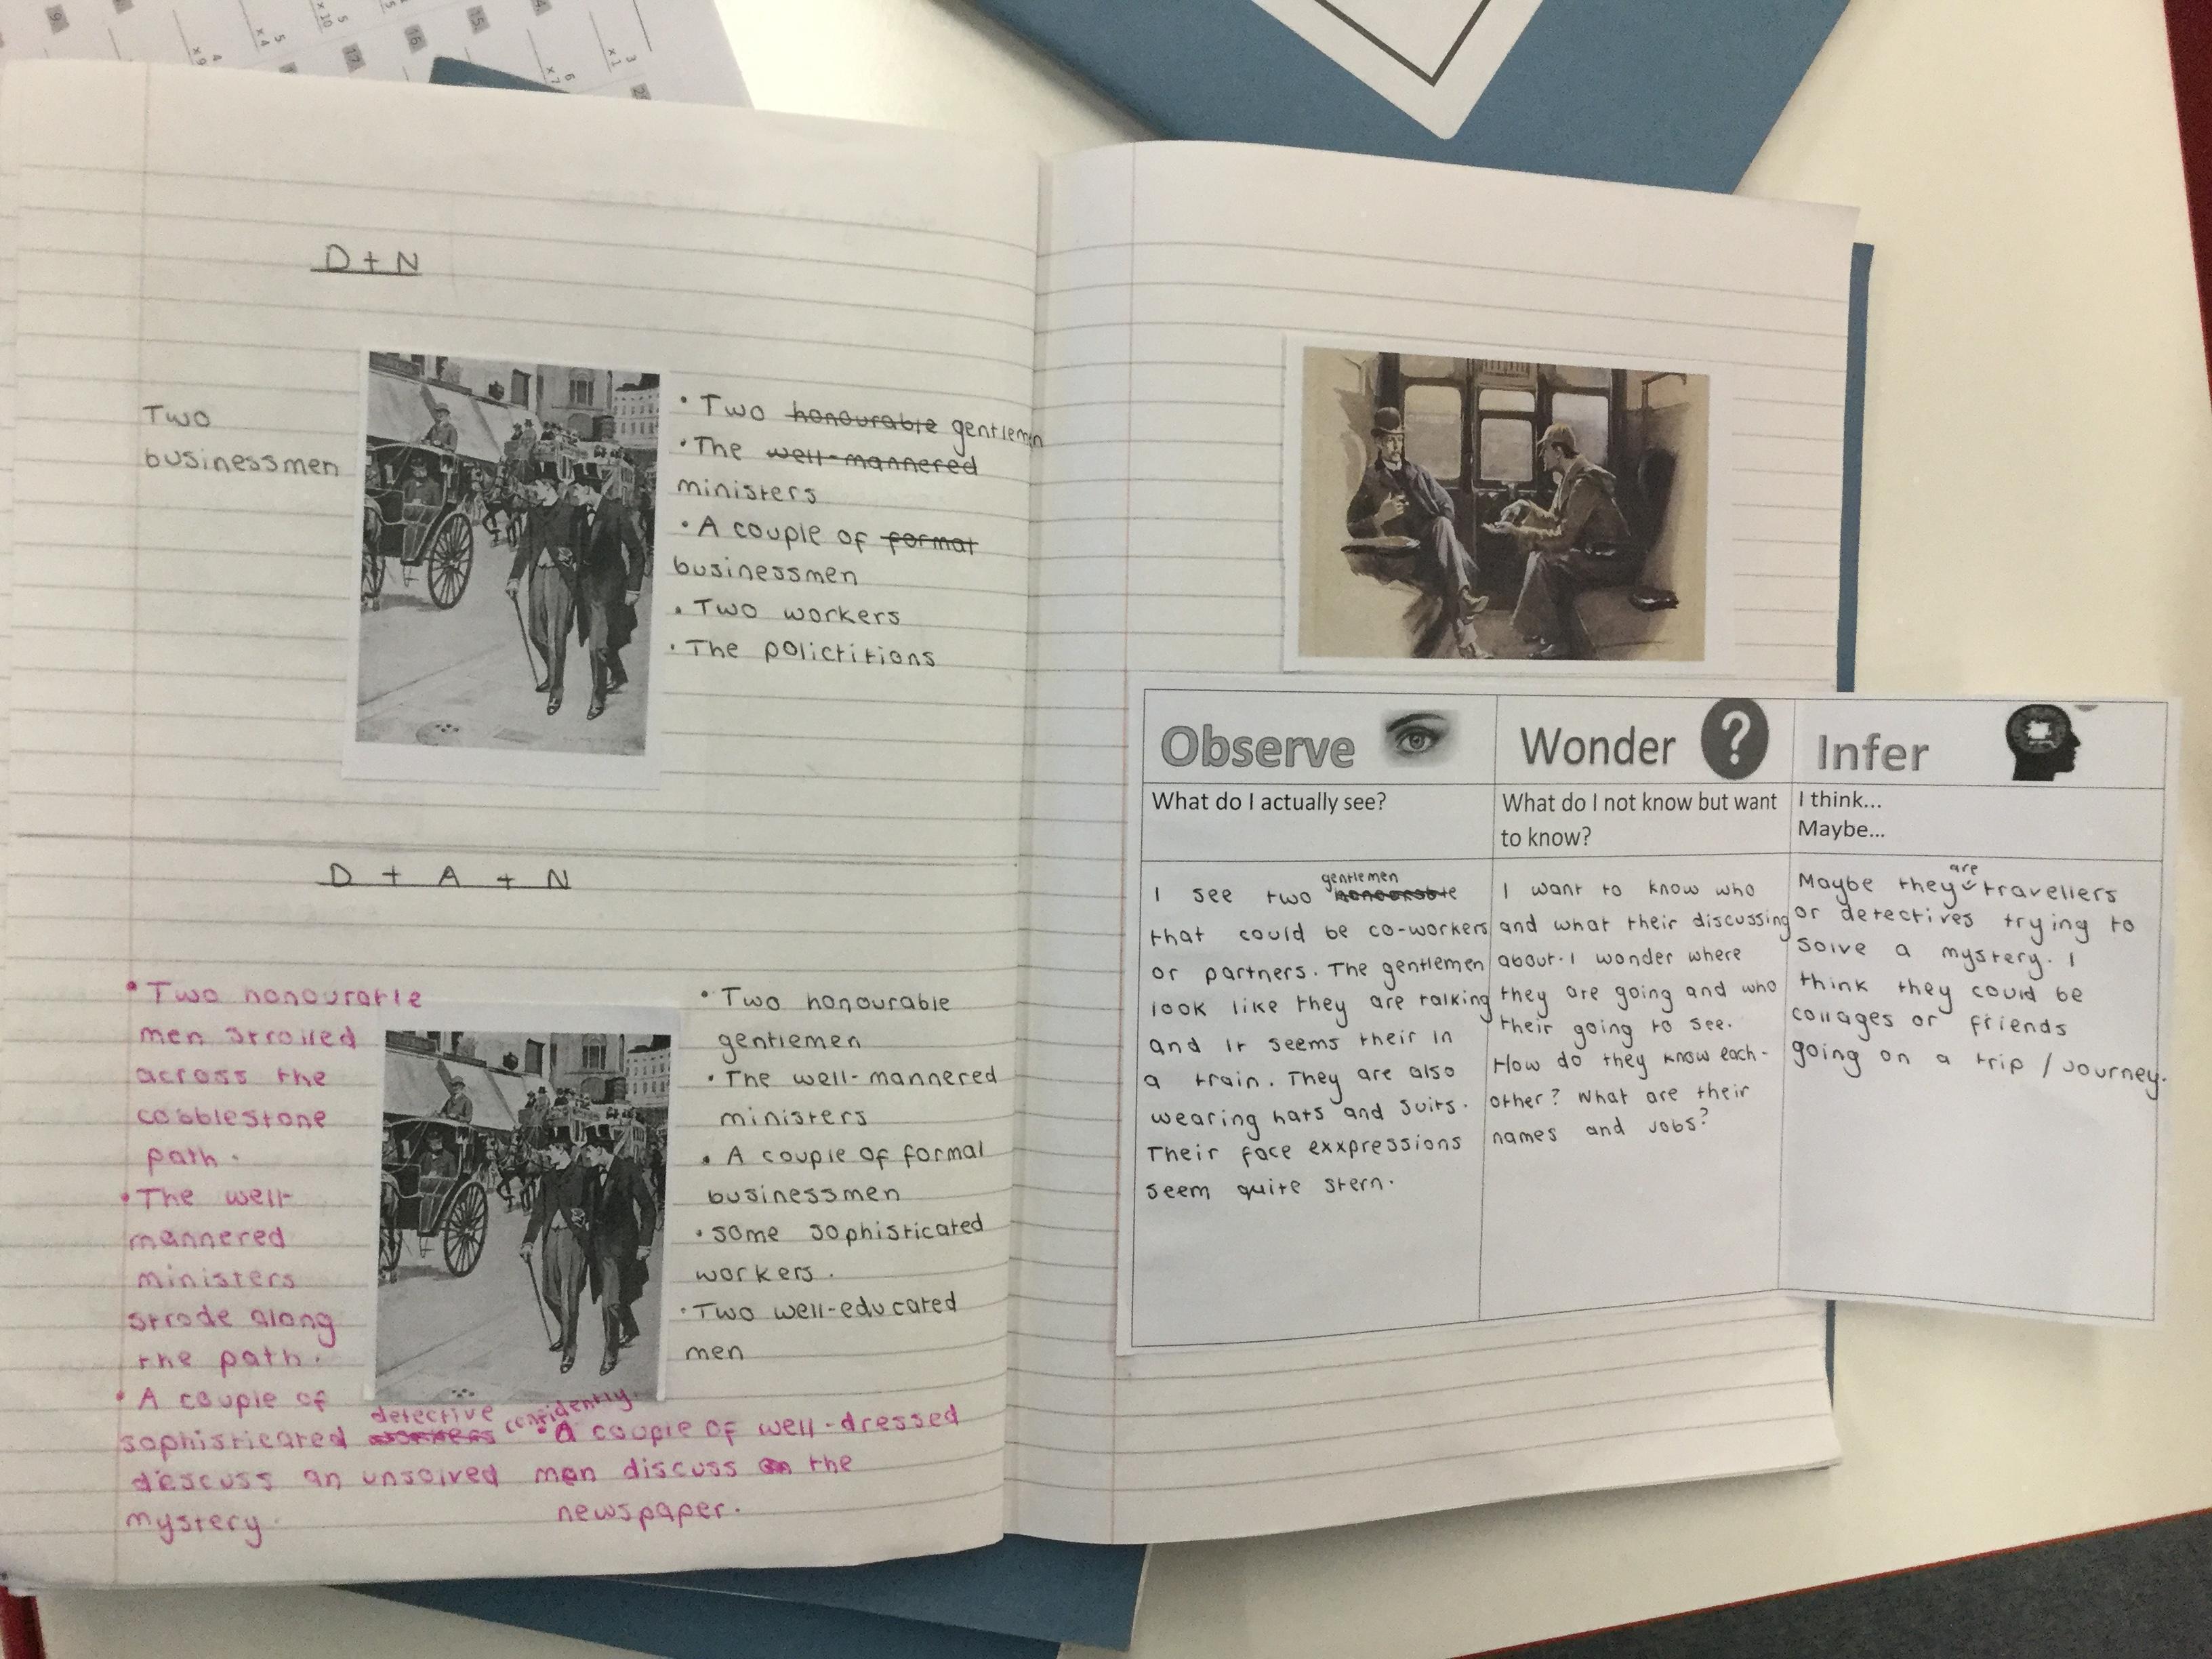 D + N
Two
businessmen
• Two honourable gentlemen
• The well-mannered
ministers
• A couple of formal
businessmen
• Two workers
• The polictitions
D + A + N
• Two honourable
men strolled
across the
cobblestone
path.
• The well-
mannered
ministers
strode along
the path.
• A couple of
detective confidently
sophisticated workers
descuss an unsolved
mystery.
• Two honourable
gentlemen
• The well-mannered
ministers
• A couple of formal
businessmen
• some sophisticated
workers.
• Two well-educated
men
• A couple of well-dressed
men discuss the
newspaper.
Observe
What do I actually see?
gentlemen
I see two honourable
that could be co-workers
or partners. The gentlemen
look like they are talking
and it seems their in
a train. They are also
wearing hats and suits.
Their face exxpressions
seem quite stern.
Wonder ?
What do I not know but want
to know?
I want to know who
and what their discussing
about. I wonder where
they are going and who
their going to see.
How do they know each-
other? What are their
names and jobs?
Infer
I think...
Maybe...
are
Maybe they travellers
or detectives trying to
solve a mystery. I
think they could be
collages or friends
going on a trip / journey.